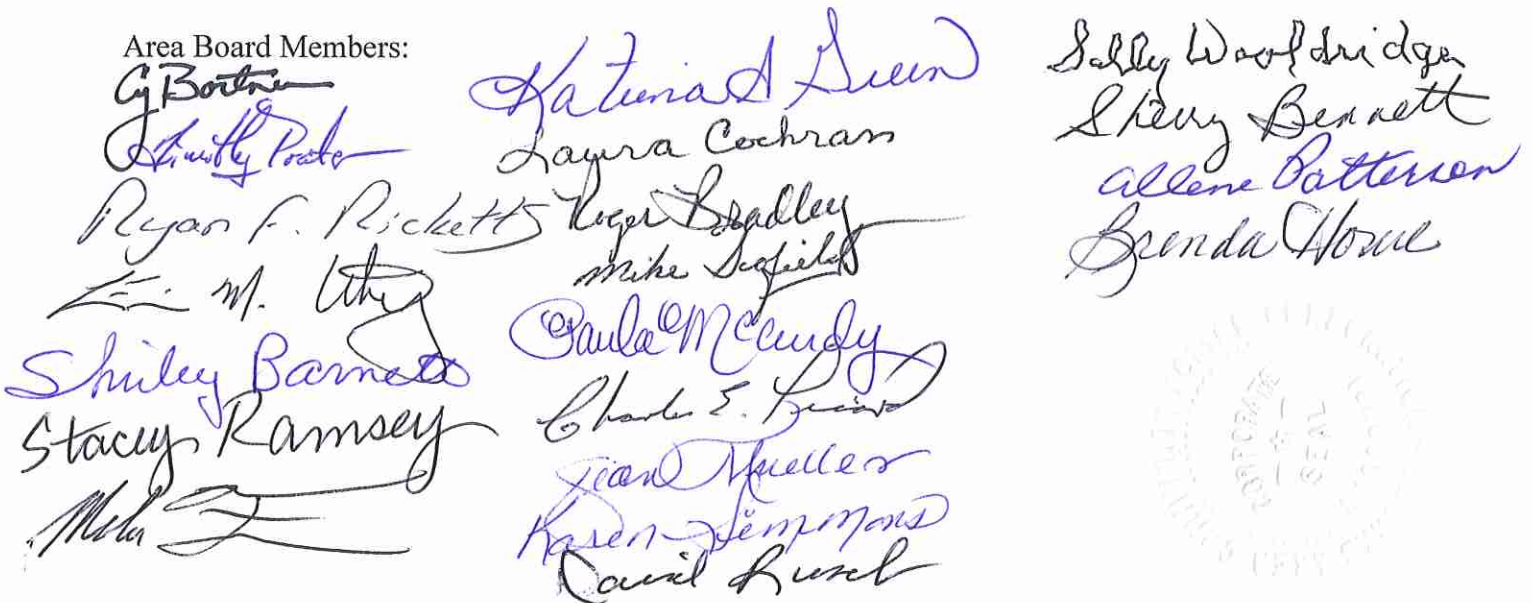 Area Board Members:
Cy Bortner
Timothy Porter
Ryan F. Ricketts
M.
Shirley Barnett
Stacey Ramsey
Mike
Katrina S Green
Laura Cochran
Roger Bradley
Mike Scofield
Paula McCurdy
Charles E.
Jean Mueller
Karen Simmons
David Rusch
Sally Wooldridge
Sherry Bennett
Allene Patterson
Brenda Howe
CORPORATE
SEAL